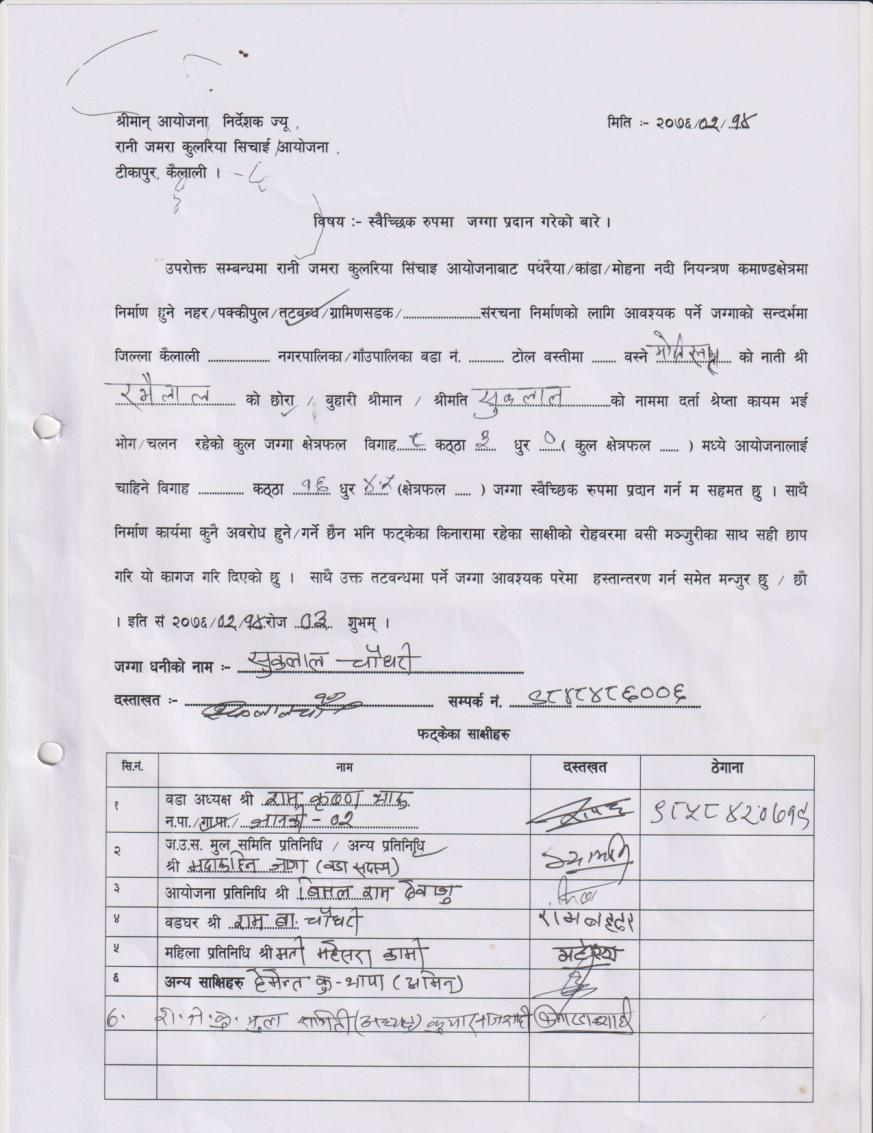 श्रीमान् आयोजना निर्देशक ज्यू ,
मिति :- २०७६/०२/१४
रानी जमरा कुलरिया सिचाई आयोजना ,
टीकापुर, कैलाली ।
विषय :- स्वैच्छिक रुपमा जग्गा प्रदान गरेको बारे ।
उपरोक्त सम्बन्धमा रानी जमरा कुलरिया सिंचाइ आयोजनाबाट पथरैया/कांडा/मोहना नदी नियन्त्रण कमाण्डक्षेत्रमा
निर्माण हुने नहर/पक्कीपुल/तटबन्ध/ग्रामिणसडक/........................संरचना निर्माणको लागि आवश्यक पर्ने जग्गाको सन्दर्भमा
जिल्ला कैलाली ................... नगरपालिका/गाँउपालिका वडा नं. ........... टोल वस्तीमा ....... वस्ने को नाती श्री
को छोरा / बुहारी श्रीमान / श्रीमति सुकलाल को नाममा दर्ता श्रेष्ता कायम भई
भोग/चलन रहेको कुल जग्गा क्षेत्रफल विगाह ८ कठ्ठा ३ धुर ० ( कुल क्षेत्रफल ...... ) मध्ये आयोजनालाई
चाहिने विगाह .............. कठ्ठा १६ धुर (क्षेत्रफल ..... ) जग्गा स्वैच्छिक रुपमा प्रदान गर्न म सहमत छु । साथै
निर्माण कार्यमा कुनै अवरोध हुने/गर्ने छैन भनि फट्केका किनारामा रहेका साक्षीको रोहवरमा बसी मञ्जुरीका साथ सही छाप
गरि यो कागज गरि दिएको छु । साथै उक्त तटवन्धमा पर्ने जग्गा आवश्यक परेमा हस्तान्तरण गर्न समेत मन्जुर छु / छौ
। इति सं २०७६/०२/१४रोज ०३ शुभम् ।
जग्गा धनीको नाम :- सुकलाल चौधरी
दस्ताखत :- सम्पर्क नं. ९८४८४८६००६
फट्केका साक्षीहरु
सि.नं. नाम दस्तखत ठेगाना
१ वडा अध्यक्ष श्री राम कृष्ण
न.पा./गा.पा./ जानकी - ०२
९८५८४२०७१९
२ ज.उ.स. मुल समिति प्रतिनिधि / अन्य प्रतिनिधि
श्री (वडा सदस्य)
३ आयोजना प्रतिनिधि श्री बिमल राम
४ वडघर श्री राम ब. चौधरी रामबहदुर
५ महिला प्रतिनिधि श्रीमती महेसरा कामी
६ अन्य साक्षिहरु हेमन्त कु. थापा (अमिन)
७. मूल समिति (अध्यक्ष)